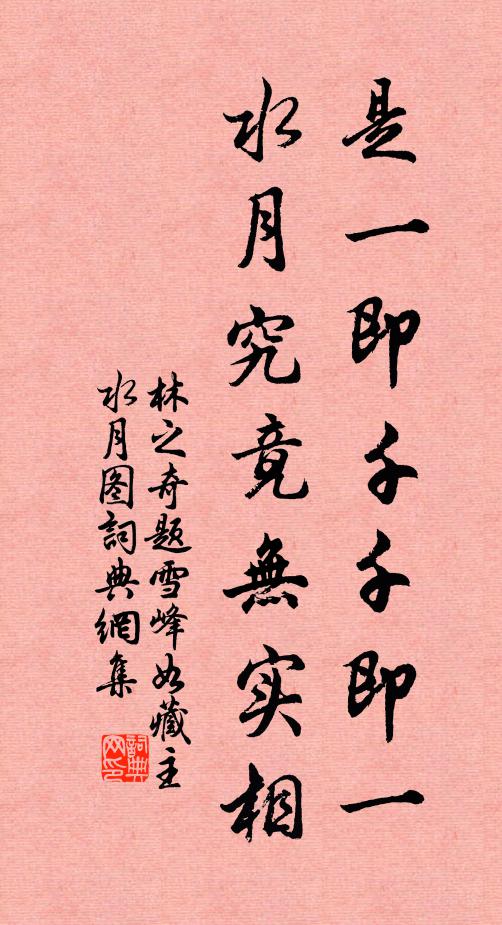 是一即千千即一
水月究竟無实相
林之奇题雪峰如藏主
水月图詞典網集
詞典
网印